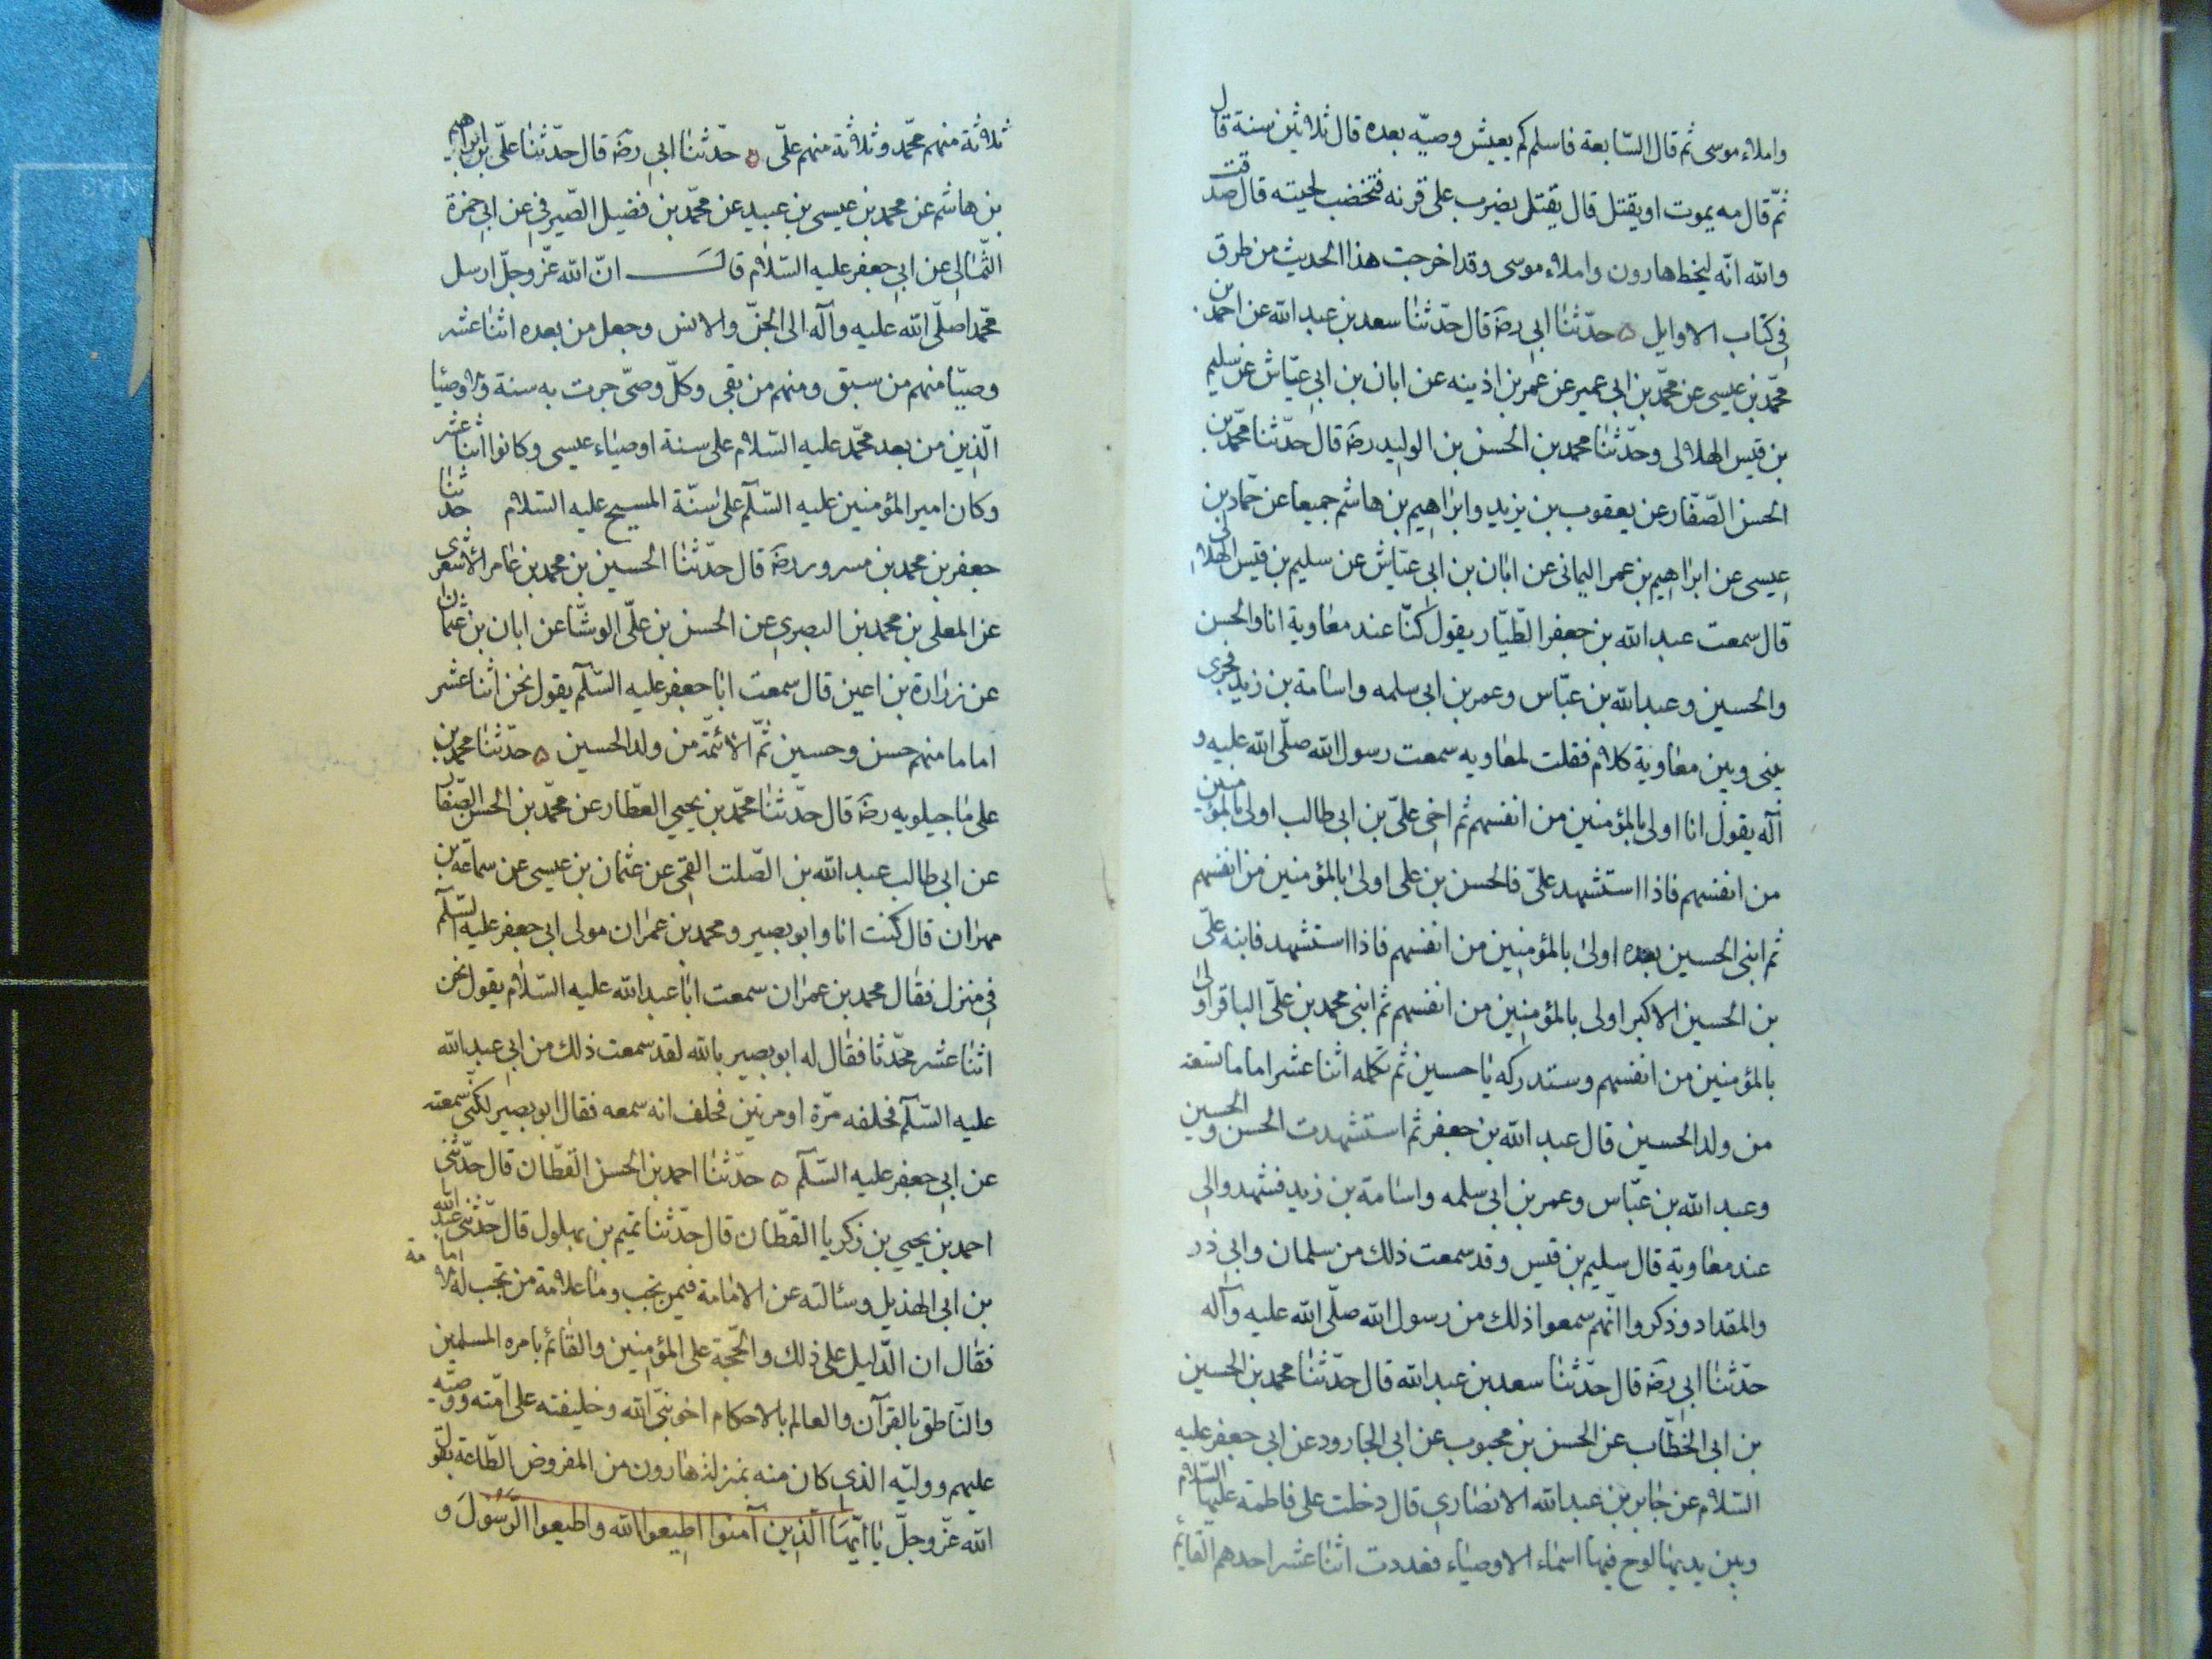 واملاء موسى ثم قال السّابعة فاسلم كم يعيش وصيّه بعده قال ثلاثين سنة قال
ثمّ قال مه يموت او يقتل قال يقتل يضرب على قرنه فتخضب لحيته قال صدقت
والله انّه لبخط هارون واملاء موسى وقد اخرجت هذا الحديث من طرق
في كتاب الاوايل حدّثنا ابي رضه قال حدّثنا سعد بن عبد الله عن احمد بن
محمّد بن عيسى عن محمّد بن ابي عمير عن عمر بن اذينه عن ابان بن ابي عيّاش عن سليم
بن قيس الهلالى وحدّثنا محمد بن الحسن بن الوليد رضه قال حدّثنا محمّد بن
الحسن الصّفّار عن يعقوب بن يزيد وابراهيم بن هاشم جميعا عن حمّاد بن
عيسى عن ابراهيم بن عمر اليمانى عن ابان بن ابي عيّاش عن سليم بن قيس الهلالى
قال سمعت عبد الله بن جعفر الطّيّار يقول كنّا عند معاوية انا والحسن
والحسين وعبد الله بن عبّاس وعمر بن ابي سلمه واسامة بن زيد فجرى
بينى وبين معاوية كلام فقلت لمعاويه سمعت رسول الله صلّى الله عليه و
آله يقول انا اولى بالمؤمنين من انفسهم ثم اخى علىّ بن ابى طالب اولى بالمؤمنين
من انفسهم فاذا استشهد علىّ فالحسن بن على اولى بالمؤمنين من انفسهم
ثم ابنى الحسين بعده اولى بالمؤمنين من انفسهم فاذا استشهد فابنه علىّ
بن الحسين الاكبر اولى بالمؤمنين من انفسهم ثم ابنى محمد بن علىّ الباقر اولى
بالمؤمنين من انفسهم وستدركه يا حسين ثم تكمله اثنا عشر اماما تسعة
من ولد الحسين قال عبد الله بن جعفر ثم استشهدت الحسن والحسين
وعبد الله بن عبّاس وعمر بن ابى سلمه واسامة بن زيد فشهدوا لى
عند معاوية قال سليم بن قيس وقد سمعت ذلك من سلمان وابى ذر
والمقداد وذكروا انّهم سمعوا ذلك من رسول الله صلّى الله عليه وآله
حدّثنا ابى رضه قال حدّثنا سعد بن عبد الله قال حدّثنا محمد بن الحسين
بن ابى الخطّاب عن الحسن بن محبوب عن ابى الجارود عن ابى جعفر عليه
السّلام عن جابر بن عبد الله الانصارى قال دخلت على فاطمة عليها السّلام
وبين يديها لوح فيها اسماء الاوصياء فعددت اثنا عشر احدهم القايم
ثلاثة منهم محمّد وثلاثة منهم علىّ حدّثنا ابي رضه قال حدّثنا علىّ بن ابراهيم
بن هاشم عن محمد بن عيسى بن عبيد عن محمّد بن فضيل الصّيرفى عن ابى حمزة
الثّمالى عن ابى جعفر عليه السّلام قال انّ الله عزّ وجلّ ارسل
محمّدا صلّى الله عليه وآله الى الجنّ والانس وجعل من بعده اثنا عشر
وصيّا منهم من سبق ومنهم من بقى وكلّ وصىّ جرت به سنة والاوصيا
الّذين من بعد محمّد عليه السّلام على سنة اوصياء عيسى وكانوا اثنا عشر
وكان امير المؤمنين عليه السّلم على سنّة المسيح عليه السّلام حدّثنا
جعفر بن محمد بن مسرور رضه قال حدّثنا الحسين بن محمد بن عامر الاشعرى
عن المعلى بن محمد بن البصرى عن الحسن بن علىّ الوشّا عن ابان بن عثمان
عن زرارة بن اعين قال سمعت ابا جعفر عليه السّلم يقول نحن اثنا عشر
اماما منهم حسن وحسين ثمّ الائمّة من ولد الحسين حدّثنا محمد بن
على ماجيلويه رضه قال حدّثنا محمّد بن يحيى العطّار عن محمّد بن الحسن الصّفّار
عن ابى طالب عبد الله بن الصّلت القمى عن عثمان بن عيسى عن سماعة بن
مهران قال كنت انا وابو بصير ومحمد بن عمران مولى ابى جعفر عليه السّلم
فى منزل فقال محمد بن عمران سمعت ابا عبد الله عليه السّلام يقول نحن
اثنا عشر محدّثا فقال له ابو بصير بالله لقد سمعت ذلك من ابى عبد الله
عليه السّلم فحلفه مرّة او مرتين فحلف انه سمعه فقال ابو بصير لكنّى سمعته
عن ابى جعفر عليه السّلم حدّثنا احمد بن الحسن القطّان قال حدّثنى
احمد بن يحيى بن زكريا القطّان قال حدّثنا تميم بن بهلول قال حدّثنى عبد الله
بن ابى الهذيل وسئالته عن الامامة فيمن تجب وما علامة من تجب له الامامة
فقال ان الدّليل على ذلك والحجّة على المؤمنين والقائم بامره المسلمين
والنّاطق بالقرآن والعالم بالاحكام اخو نبىّ الله وخليفته على امّته ووصيّه
عليهم ووليّه الذى كان منه بمنزلة هارون من المفروض الطّاعة بقول
الله عزّ وجلّ يا ايّها الّذين آمنوا اطيعوا الله واطيعوا الرّسول و